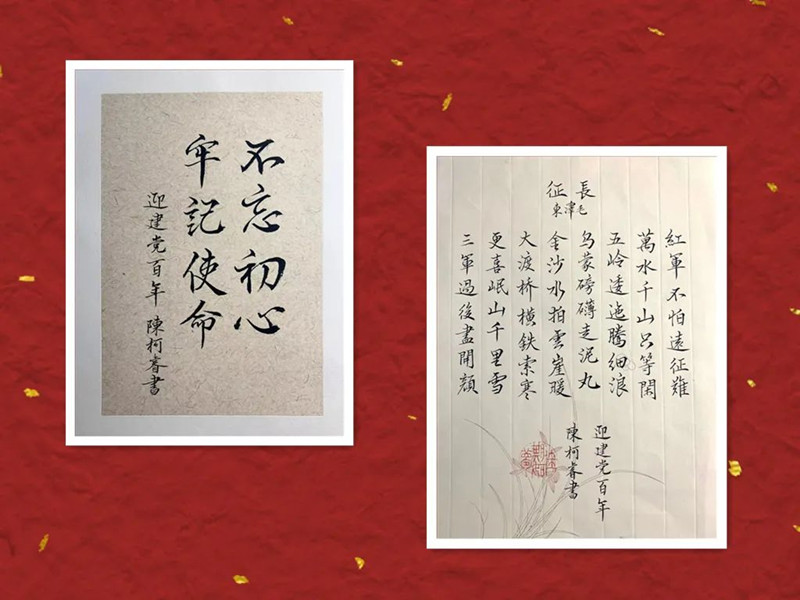 不忘初心
牢記使命
迎建党百年 陳柯睿書
長征
毛澤東
紅軍不怕遠征難
萬水千山只等閑
五岭逶迤騰细浪
乌蒙磅礴走泥丸
金沙水拍雲崖暖
大渡桥橫鉄索寒
更喜岷山千里雪
三軍過後盡開顔
迎建党百年
陳柯睿書